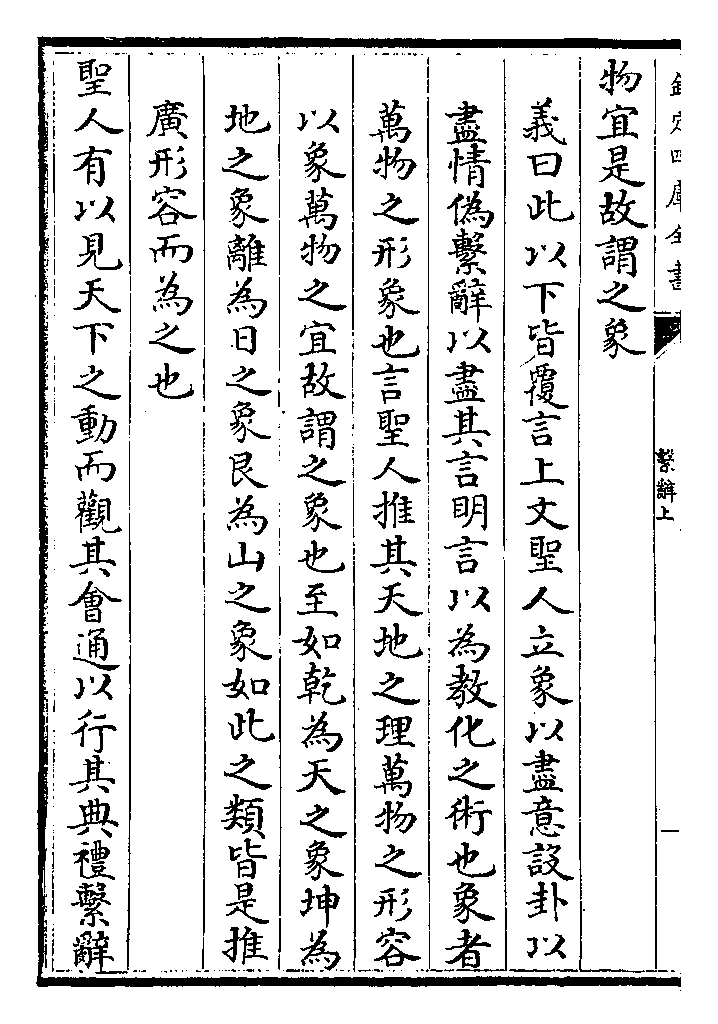 欽定四庫全書
繫辭上
物宜是故謂之象
義曰此以下皆覆言上文聖人立象以盡意設卦以
盡情偽繫辭以盡其言明言以為教化之術也象者
萬物之形象也言聖人推其天地之理萬物之形容
以象萬物之宜故謂之象也至如乾為天之象坤為
地之象離為日之象艮為山之象如此之類皆是推
廣形容而為之也
聖人有以見天下之動而觀其會通以行其典禮繫辭